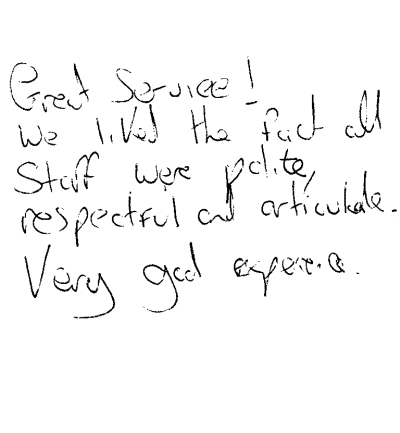 Great Service!
We liked the fact all
Staff were polite,
respectful and articulate.
Very good experience.